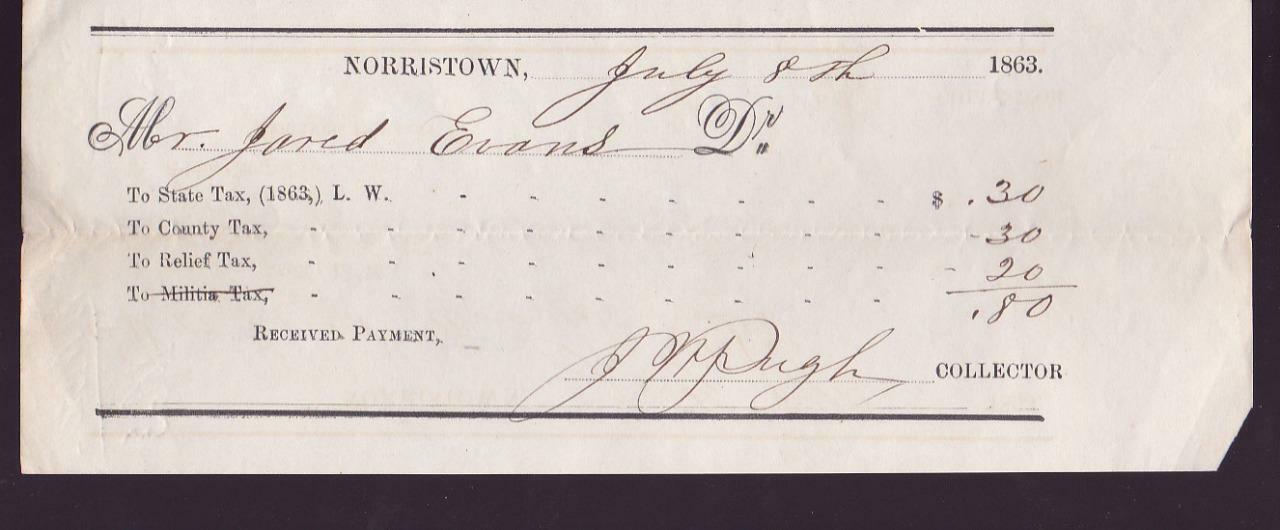 NORRISTOWN, July 8th 1863.
Mr. Jared Evans Dr
To State Tax, (1863,) L. W. - - - - - - - $ .30
To County Tax, - - - - - - - - - 30
To Relief Tax, - - - - - - - - - 20
To Militia Tax, - - - - - - - - .80
RECEIVED PAYMENT,
J W Pugh COLLECTOR